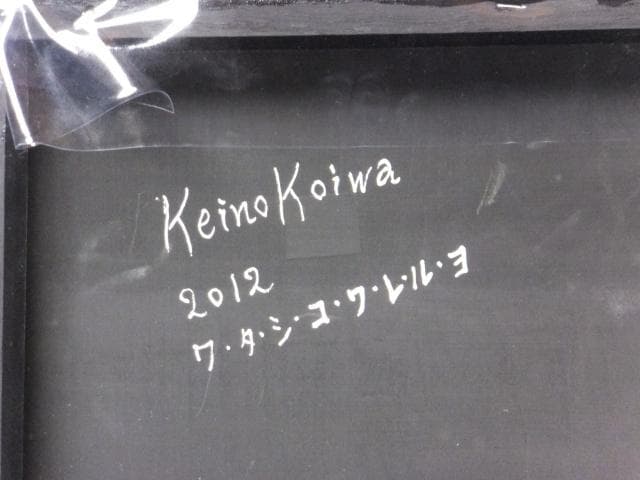 Keino Koiwa
2012
ワ・タ・シ・コ・ワ・レ・ル・ヨ